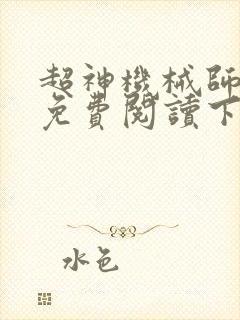 超神機械師
免費閱讀下
水色